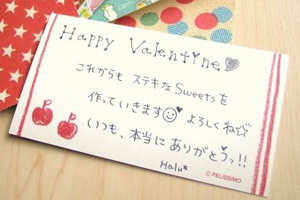 Happy Valentine♡
これからも ステキなSweetsを
作っていきます☺♡ よろしくね☆
いつも、本当に ありがとうっ!!
Halu*
© FELISSIMO